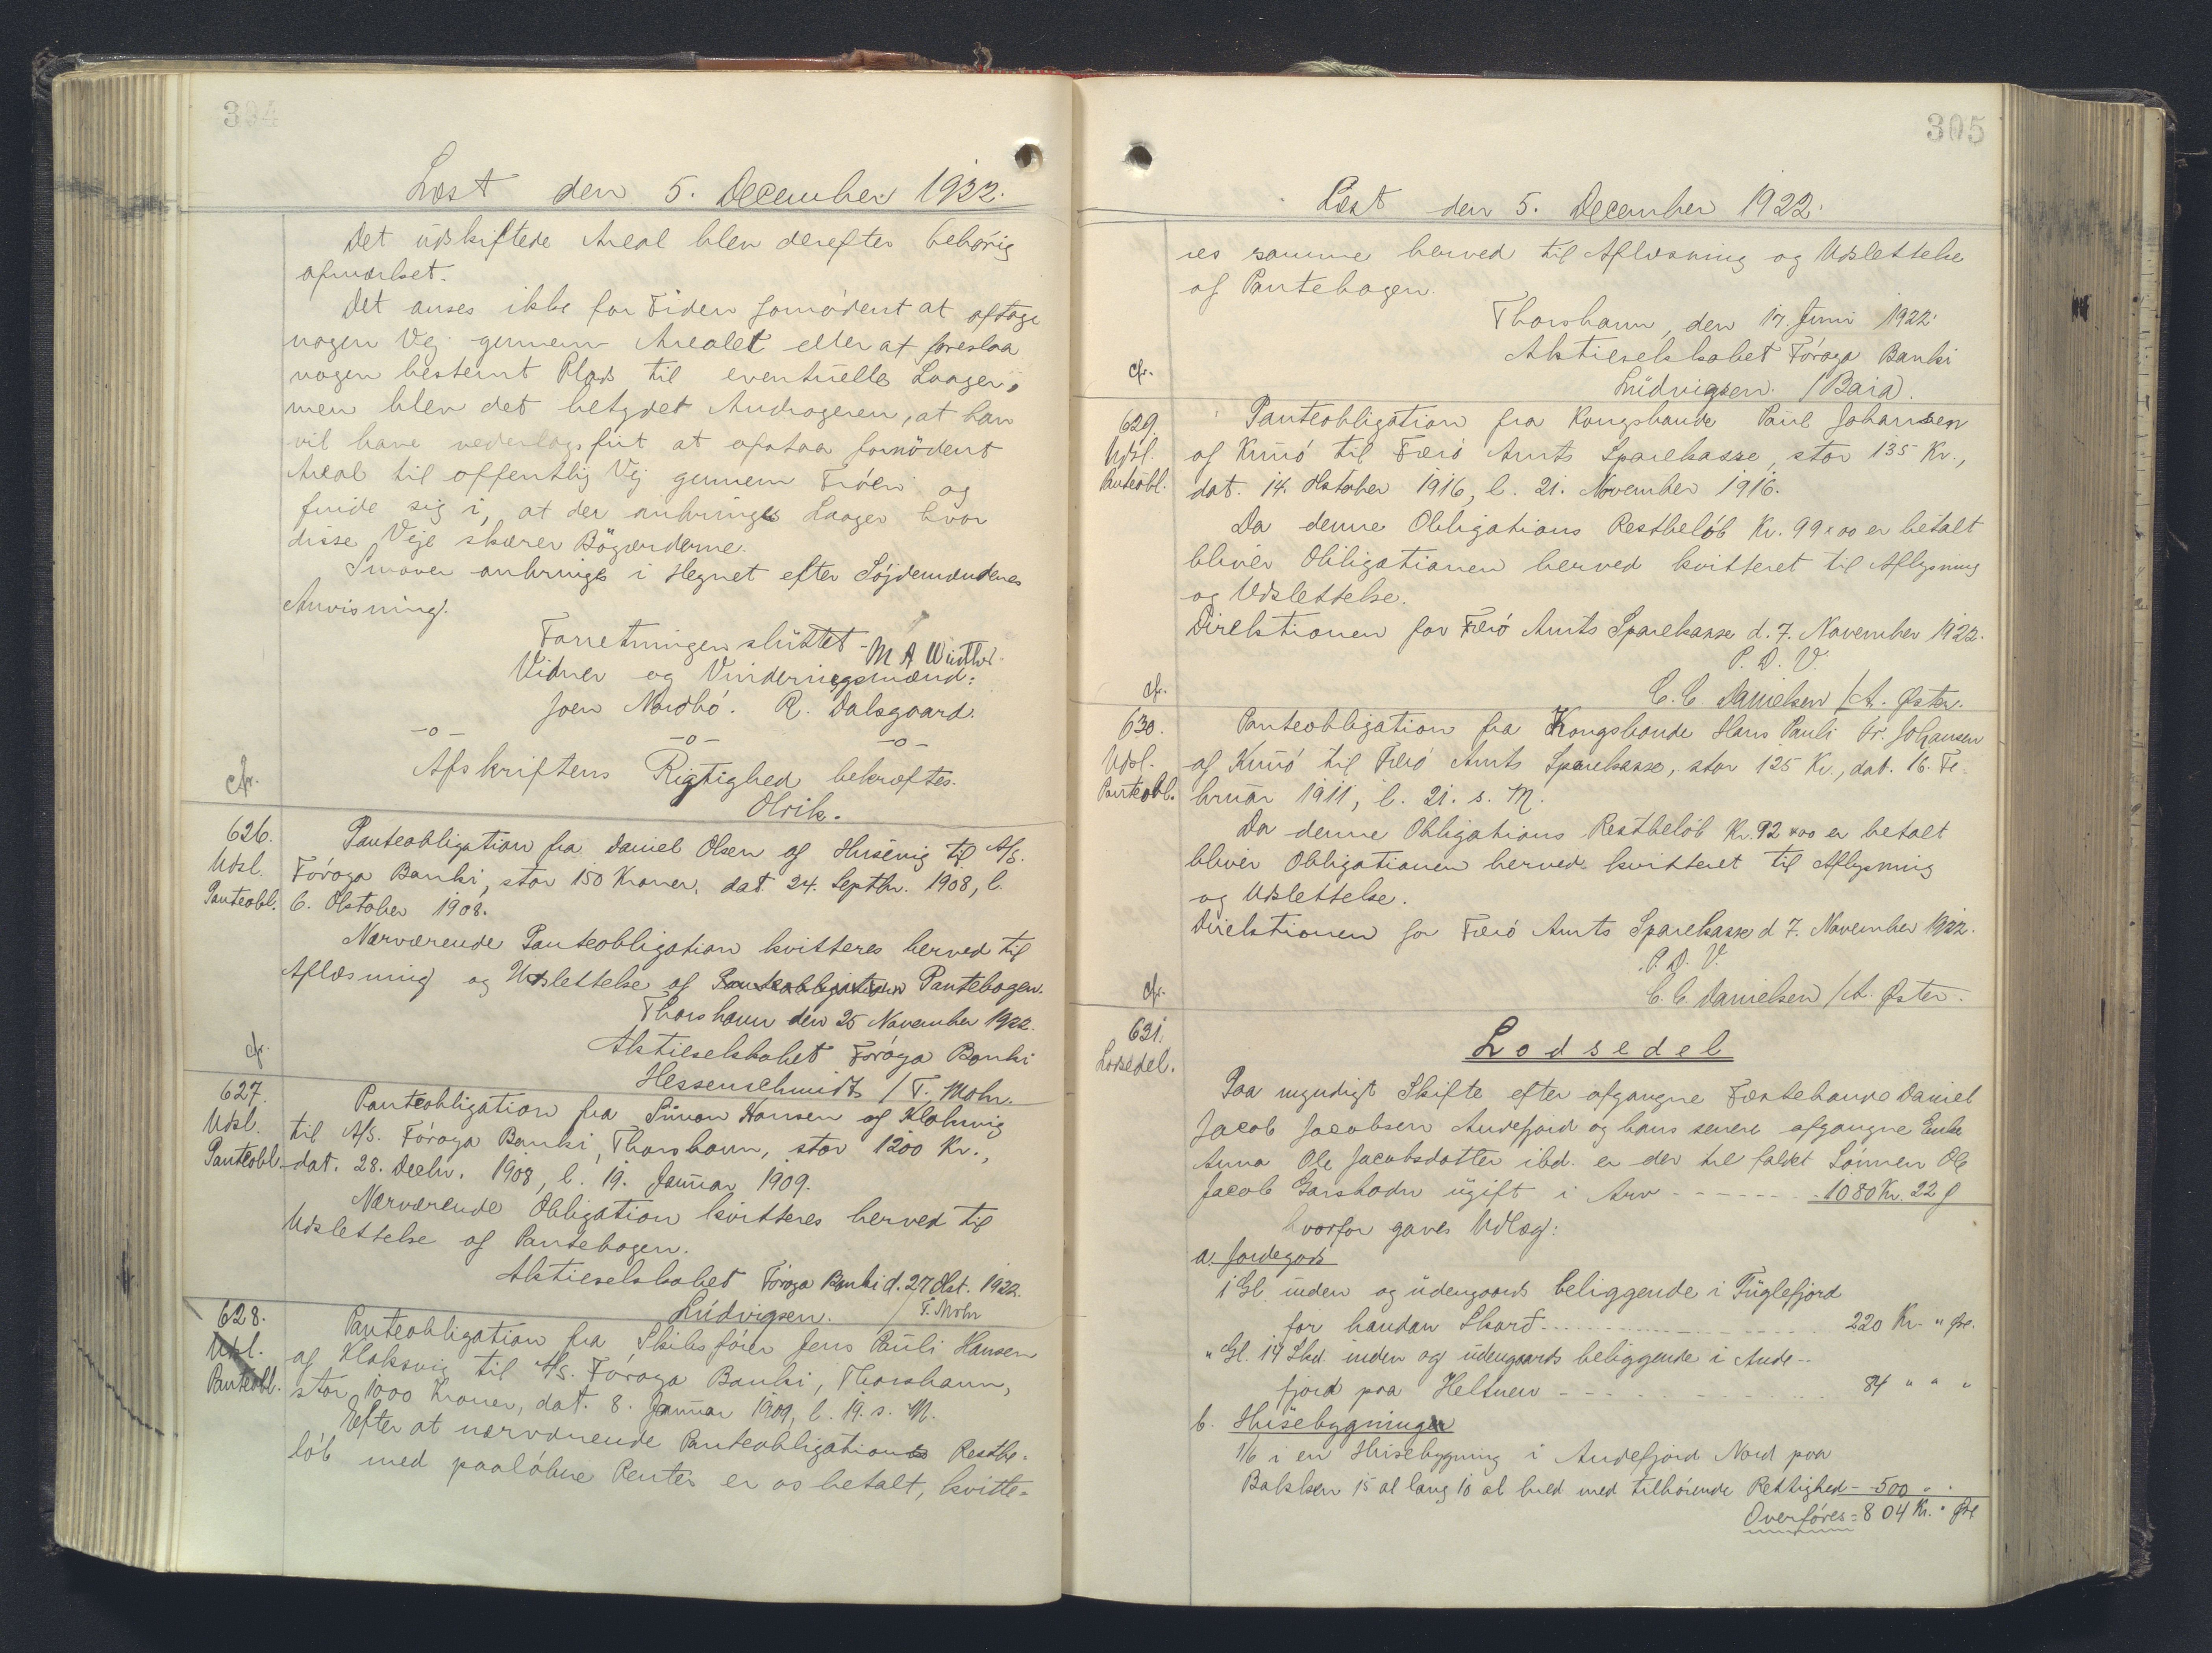 304
Læst den 5. December 1922.
Det udskiftede Areal blev derefter behørig
afmærket.
Det anses ikke for Tiden fornødent at aftage
nogen Vej gennem Arealet eller at foreslaa
nogen bestemt Plads til eventuelle Laager,
men blev det betydet Andrageren, at han
vil have vederlagsfrit at afstaa fornødent
Areal til offentlig Vej gennem Tröen og
finde sig i, at der anbringes Laager hvor
disse Veje skærer Bögærderne.
Smover anbringes i Hegnet efter Söjdemændenes
Anvisning.
Forretningen sluttet - M A Winther
Vidner og Vurderingsmænd:
Joen Nordbö. R. Dalsgaard.
-o- -o- -o-
Afskriftens Rigtighed bekræftes.
cfr. Olrik.
626. Panteobligation fra Daniel Olsen af Husevig til A/S.
Udsl. Föroya Banki, stor 150 Kroner, dat. 24. Septbr. 1908, l.
Panteobl. 6. Oktober 1908.
Nærværende Panteobligation kvitteres herved til
Aflæsning og Udslettelse af Panteobligation Pantebogen.
Thorshavn den 25 November 1922.
Aktieselskabet Föroya Banki
cfr. Hessenschmidt / T. Mohr.
627. Panteobligation fra Simon Hansen af Klaksvig
Udsl. til A/S. Föroya Banki, Thorshavn, stor 1200 Kr.,
Panteobl. dat. 28. Decbr. 1908, l. 19. Januar 1909.
Nærværende Obligation kvitteres herved til
Udslettelse af Pantebogen.
Aktieselskabet Föroya Banki d. 27 Okt. 1922.
Ludvigsen. / T. Mohr
628. Panteobligation fra Skibsförer Jens Pauli Hansen
Udsl. af Klaksvig til A/S. Föroya Banki, Thorshavn,
Panteobl. stor 1000 Kroner, dat. 8. Januar 1909, l. 19. s. M.
Efter at nærværende Panteobligations Restbe-
löb med paalöbne Renter er os betalt, kvitte-
305
Læst den 5. December 1922.
res samme herved til Aflæsning og Udslettelse
af Pantebogen.
Thorshavn, den 17. Juni 1922.
Aktieselskabet Föroya Banki
cfr. Ludvigsen. / Baia.
629. Panteobligation fra Kongsbonde Paul Johansen
Udsl. af Kunö til Færö Amts Sparekasse, stor 135 Kr.,
Panteobl. dat. 14. Oktober 1916, l. 21. November 1916.
Da denne Obligations Restbelöb Kr. 99 x 00 er betalt
bliver Obligationen herved kvitteret til Aflysning
og Udslettelse.
Direktionen for Færö Amts Sparekasse d. 7. November 1922.
P. D. V.
cfr. C. C. Danielsen / A. Øster.
630. Panteobligation fra Kongsbonde Hans Pauli Fr. Johansen
Udsl. af Kunö til Færö Amts Sparekasse, stor 125 Kr., dat. 16. Fe-
Panteobl. bruar 1911, l. 21. s. M.
Da denne Obligations Restbelöb Kr. 92 x 00 er betalt
bliver Obligationen herved kvitteret til Aflysning
og Udslettelse.
Direktionen for Færö Amts Sparekasse d 7. November 1922.
P. D. V.
cfr. C. C. Danielsen / A. Øster.
631. Lodsedel
Lodsedel.
Paa myndigt Skifte efter afgangne Fæstebonde Daniel
Jacob Jacobsen Andefjord og hans senere afgangne Enke
Anna Ole Jacobsdatter ibd. er der til faldet Sönnen Ole
Jacob Garshodn ugift i Arv - - - - - - - 1080 Kr. 22 Ø
hvorfor gaves Udlæg:
a. Jordegods
1 Gl. inden og udengaards beliggende i Fuglefjord
for handan Skarð - - - - - 220 Kr. " Øre.
" Gl. 14 Skd. inden og udengaards beliggende i Ande-
fjord paa Heltnen - - - - - 84 " " "
b. Husebygninger
1/6 i en Husebygning i Andefjord Nord paa
Bakken 15 al lang 10 al bred med tilhörende Rettighed - 500 " "
Overföres = 804 Kr. " Øre